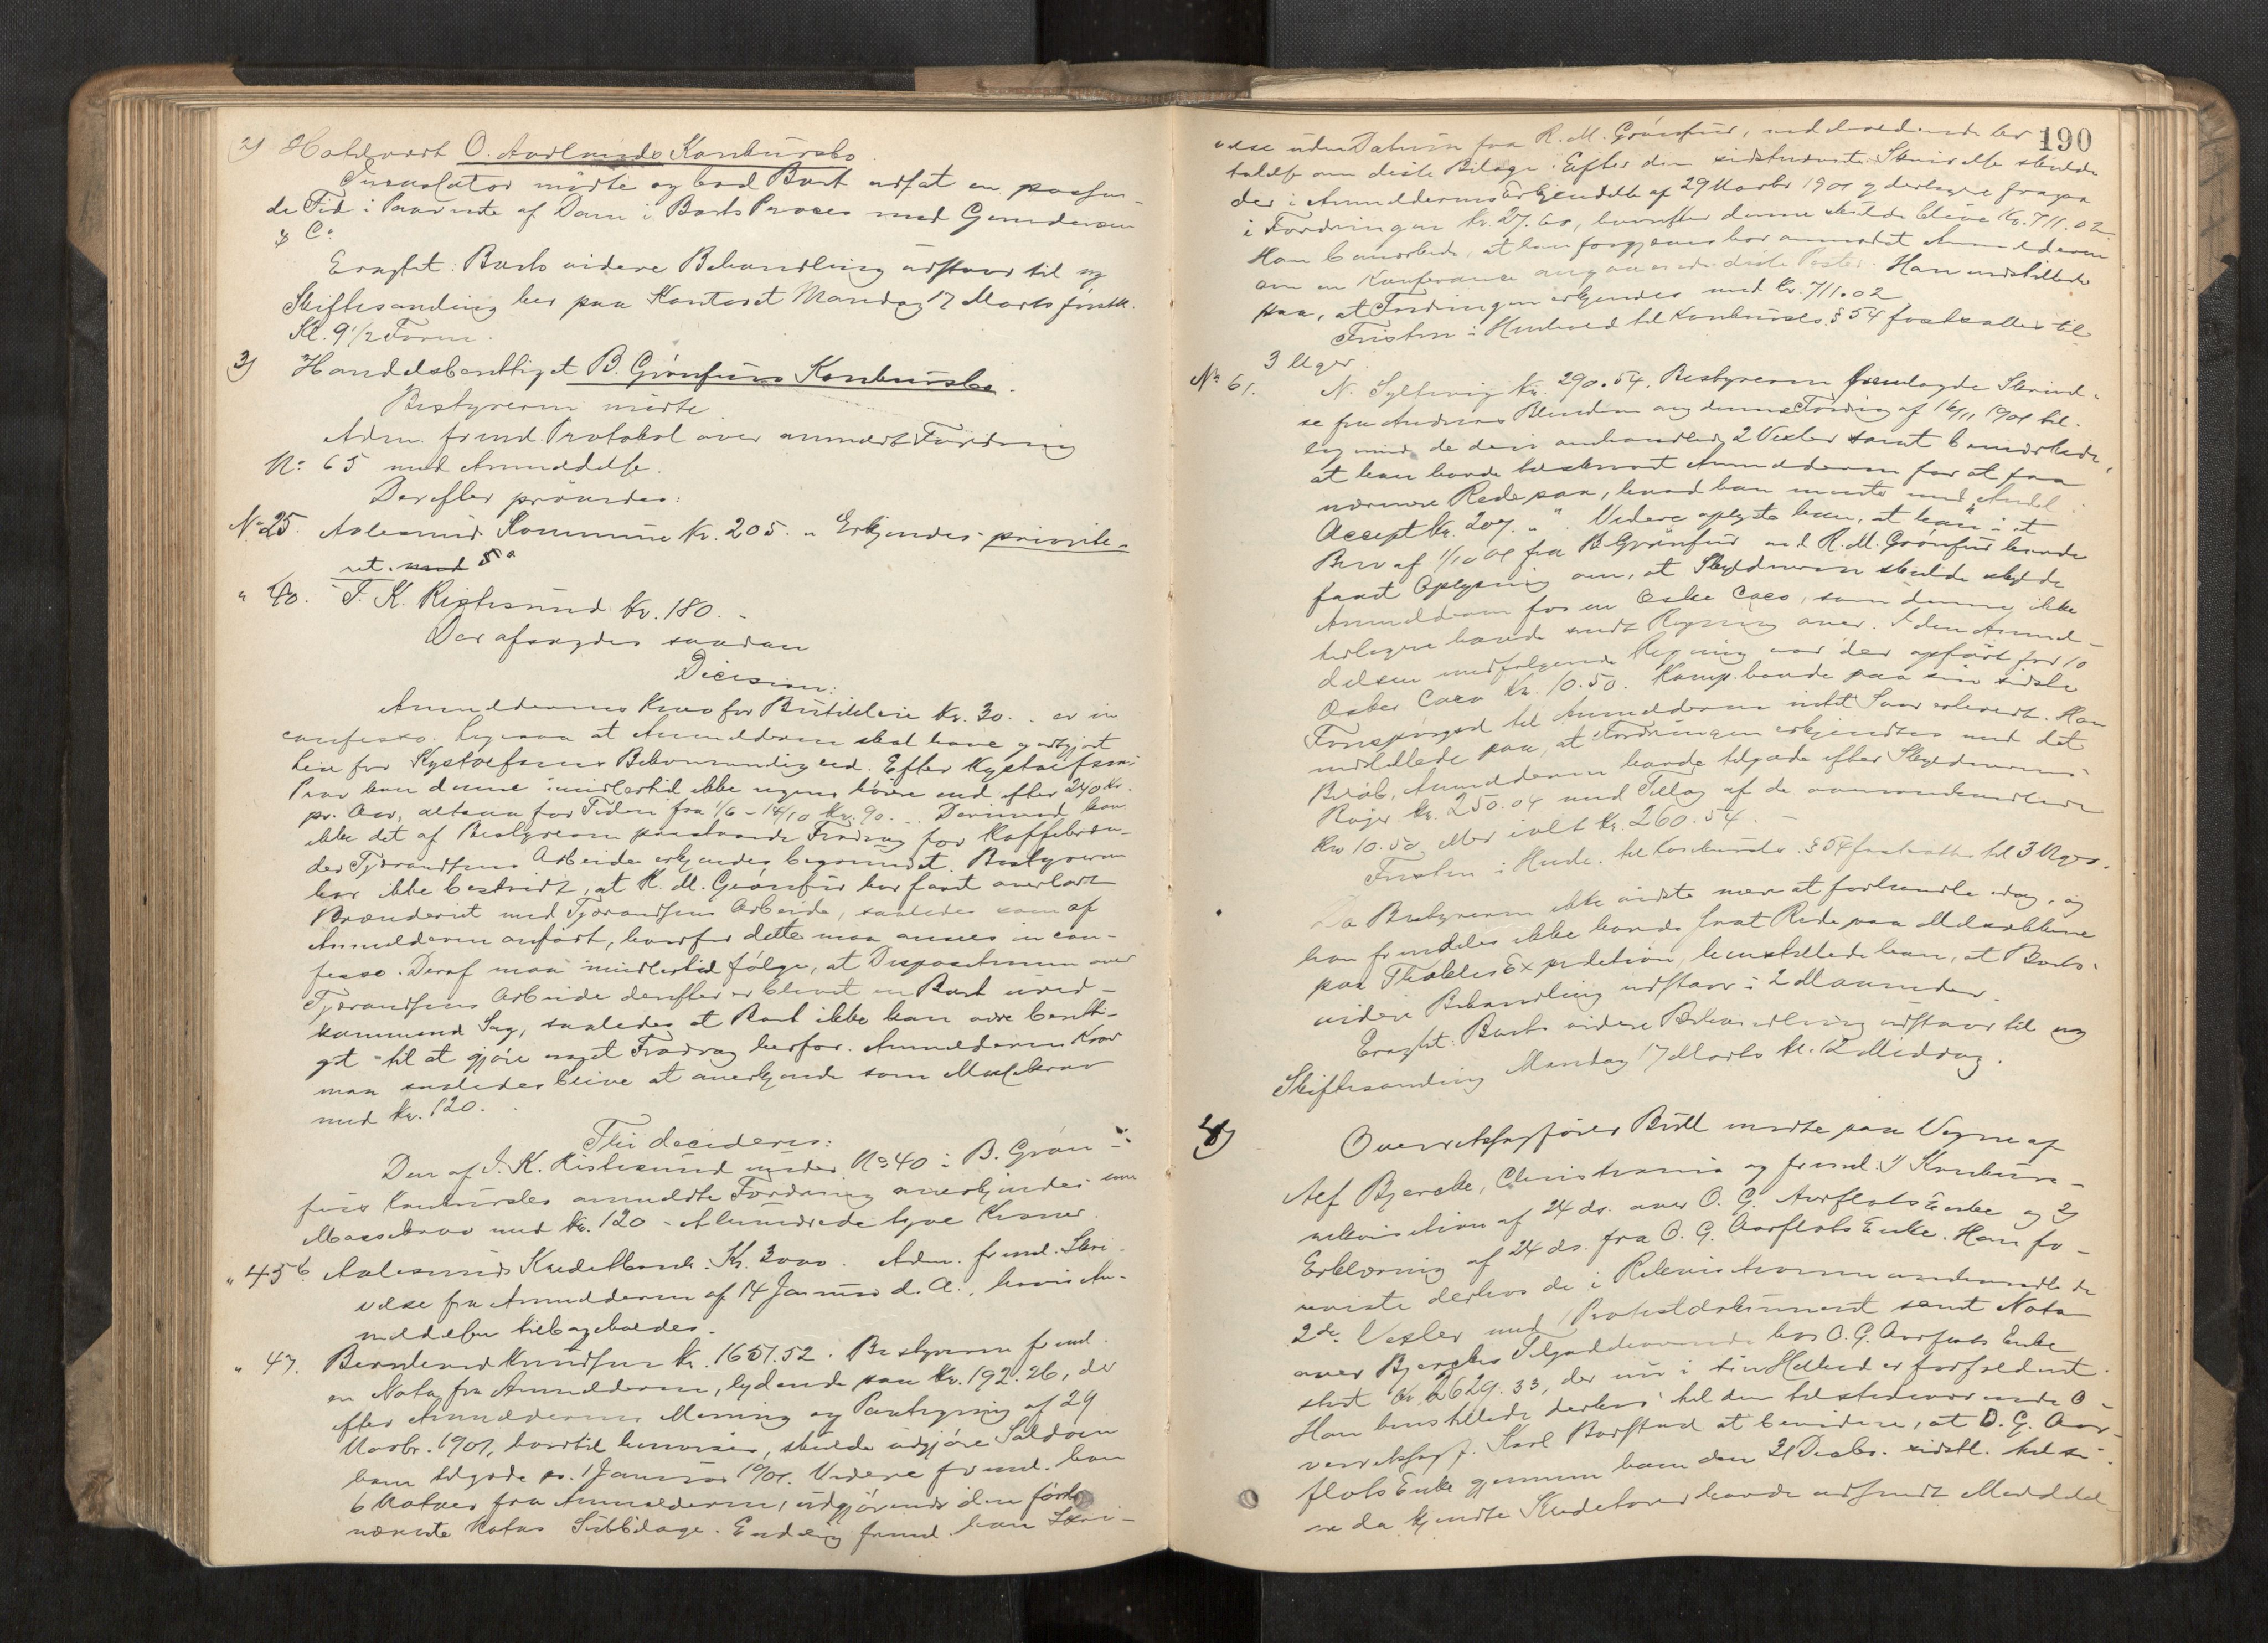 2) Hotelvært O. Aarlands Konkursbo.
Incassator mødte og bad Boet udsat en passen-
de Tid i Paavente af Dom i Boets Proces med Gundersen
& Co.
Eragtet: Boets videre Behandling udstaar til ny
Skiftesamling her paa Kontoret Mandag 17 Marts førstk.
Kl. 9 1/2 Form.
3) Handelsberettiget B. Grønfurs Konkursbo.
Bestyreren mødte
Adm. freml. Protokol over anmeldt Fordring
No 65 med Anmeldelse.
Derefter prøvedes:
No 25. Aalesund Kommune Kr. 205. " Erkjendes privile-
ret. med 5a
" 40. I. K. Ristesund Kr. 180. -
Der afsagdes saadan
Decision:
Anmelderens Krav for Butikleie Kr. 30. . er in
confesso. Ligesaa at Anmelderen skal have godtgjort
leie for Kystoefsens Bekvemmelighed. Efter
Prov kan denne imidlertid ikke regnes høiere end efter 240 Kr.
pr. Aar, altsaa for Tiden fra 1/6 - 14/10 Kr. 90. . Derimod kan
ikke det af Bestyreren paastaaede Fradrag for Kaffebræn-
der Tjørandsens Arbeide erkjendes begrundet. Bestyreren
har ikke bestridt, at R. M. Grønfur har faaet overladt
Brænderiet med Tjørandsens Arbeide, saaledes som af
Anmelderen anført, hvorfor dette maa ansees in con-
fesso. Deraf maa imidlertid følge, at Dispositionen over
Tjørandsens Arbeide derefter er blevet en Boet uved-
kommende Sag, saaledes at Boet ikke kan være beretti-
get til at gjøre noget Fradrag herfor. Anmelderens Krav
maa saaledes blive at anerkjende som Massekrav
med Kr. 120. .
Thi decideres:
Den af I. K. Ristesund under No 40 i B. Grøn-
furs Konkursbo anmeldte Fordring anerkjendes som
Massekrav med Kr. 120 - Et hundrede tyve Kroner.
" 45 b. Aalesunds Kreditbank. Kr. 3000. Adm. freml. Skri-
velse fra Anmelderen af 14 Januar d. A., hvori An-
meldelsen tilbagekaldes.
" 47. Bernhard Knudsen Kr. 1651.52. Bestyreren freml.
en Nota fra Anmelderen, lydende paa Kr. 192.26, der
efter Anmelderens Mening og Paategning af 29
Novbr. 1901, hvortil henvises, skulde udgjøre Saldoen
ham tilgode pr. 1 Januar 1901. Videre freml. han
6 Notaer fra Anmelderen, udgjørende den først-
nævnte Notas Bilage. Endelig freml. han Skri-
190
velse uden Datum fra R. M. Grønfur,
talelse om disse Bilage. Efter den sidstnævnte Skrivelse skulde
der i Anmelderens Opgjendelse af 29 Novbr 1901 yderligere fragaa
i Fordringen Kr. 27.60, hvorefter denne skulde blive Kr. 711.02.
Han bemærkede, at han forgjæves har anmodet Anmelderen
om en Konferance angaaende disse Poster. Han indstillede
paa, at Fordringen erkjendes med Kr. 711.02
Fristen i Henhold til Konkursls. § 54 fastsattes til
3 Uger.
No 61. N. Syltevig Kr. 290.54. Bestyreren fremlagde Skrivel-
se fra Andreas ang denne Fordring af 16/11 1901 til-
ligemed de deri omhandlede 2 Vexler samt bemærkede,
at han havde tilskrevet Anmelderen for at faa
nærmere Rede paa, hvad han mente med
Accept Kr. 207. " " Videre oplyste han, at han i et
Brev af 1/10 01 fra B Grønfur ved R. M. Grønfur havde
faaet Oplysning om, at Skyldneren skulde skylde
Anmelderen for en Æske Caco, som denne ikke
tidligere havde sendt Regning over. I den Anmel-
delsen medfølgende Regning var der opført for 10
Æsker Caco Kr. 10.50. Komp. havde paa sin sidste
Forespørgsel til Anmelderen intet Svar erholdt. Han
indstillede paa, at Fordringen erkjendtes med det
Beløb, Anmelderen havde tilgode efter Skyldnerens
Bøger Kr. 250.04 med Tillæg af de ovenomhandlede
Kr 10.50 eller ialt Kr. 260.54. -
Fristen i Henh. til Konkursls. § 54 fastsattes til 3 Uger.
Da Bestyreren ikke vidste mere at forhandle idag, og
han fremdeles ikke havde faaet Rede paa Melsækkene
paa Expedition, henstillede han, at Boets
videre Behandling udstaar i 2 Maaneder.
Eragtet: Boets videre Behandling udstaar til ny
Skiftesamling Mandag 17 Marts kl. 12 Middag.
4) Overretssagfører Bull mødte paa Vegne af
Alf Bjercke, Christiania og freml. 1) Konkurs-
rekvisition af 24 ds. over O. G. Aarflots Enke og 2)
Erklæring af 24 ds. fra O. G. Aarflots Enke. Han fo-
reviste derhos de i Rekvisitionen omhandlede
2de Vexler med Protestdokument samt Nota
over Bjerckes Tilgodehavende hos O. G. Aarflots Enke
stort Kr 2629.33, der nu i sin Helhed er forfaldent.
Han henstillede derhos til den tilstedeværende O-
verretssagf. Karl Barstad at bevidne, at O. G. Aar-
flots Enke gjennem ham den 21 Decbr. sidstl. til si-
ne da kjendte Kreditorer havde udsendt Meddelel-